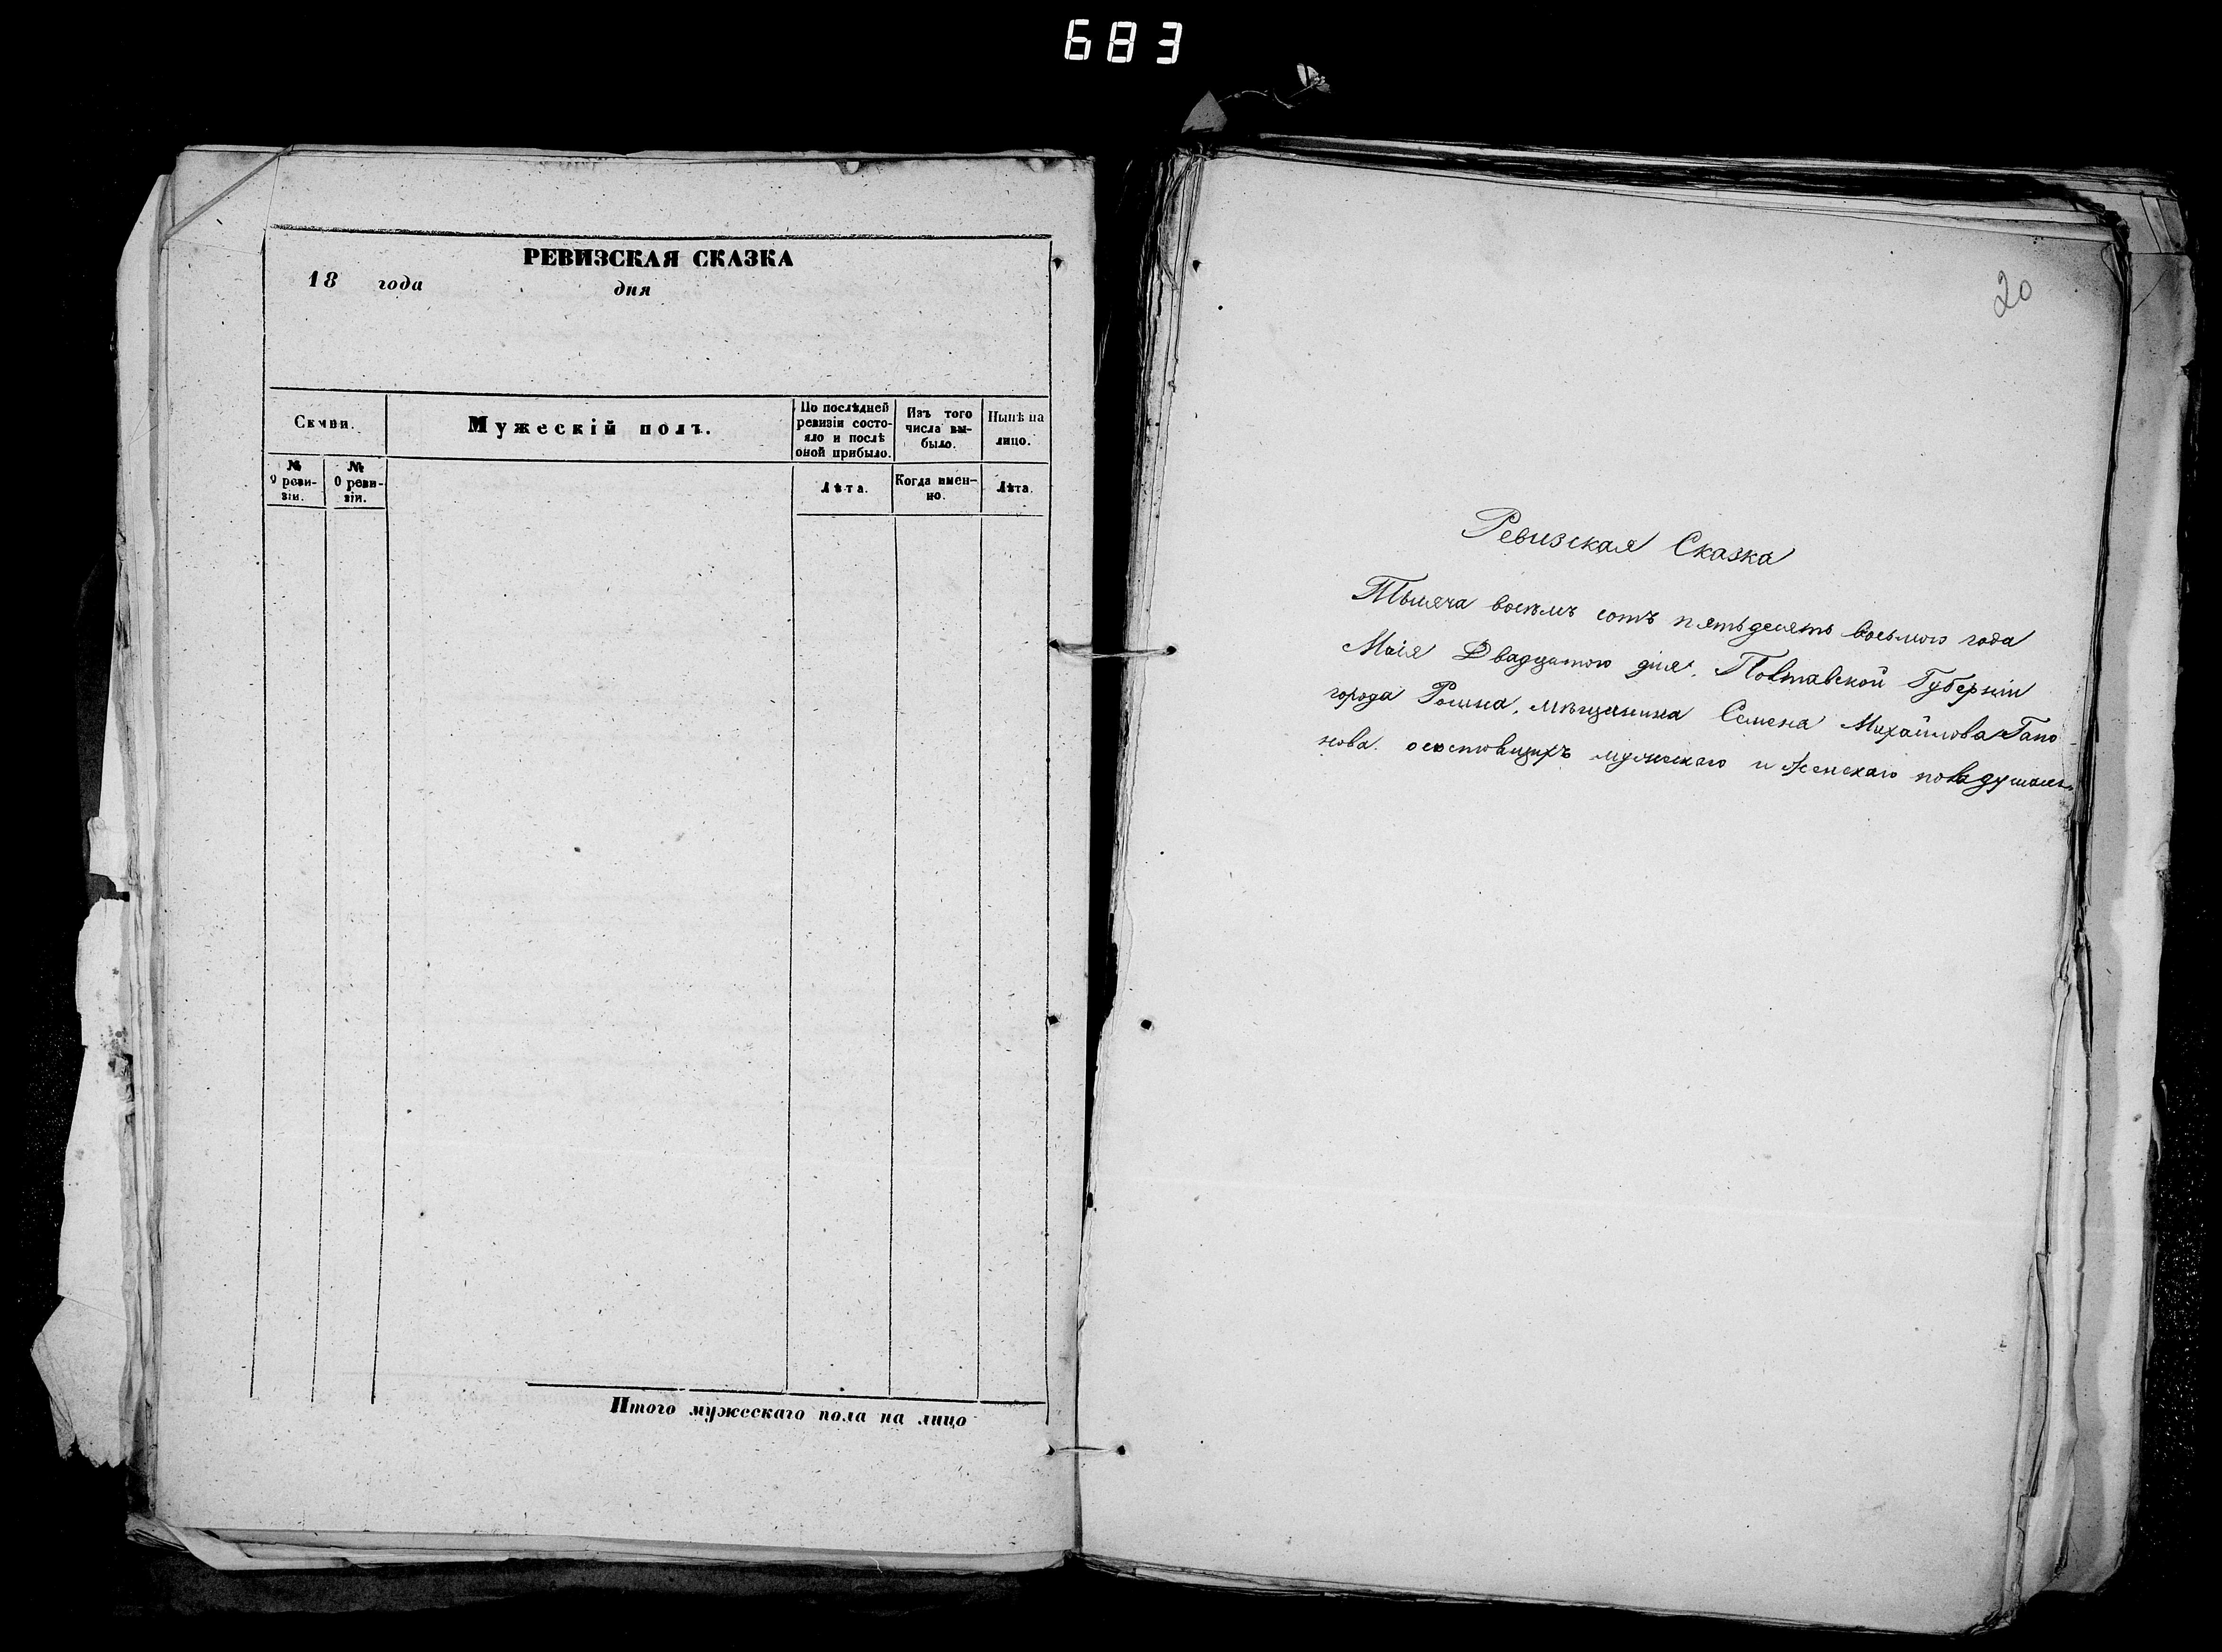 683
РЕВИЗСКАЯ СКАЗКА
18 года дня
Семьи.
Мужескій полъ.
По послѣдней ревизіи состояло и послѣ оной прибыло.
Изъ того числа выбыло.
Нынѣ на лицо.
№ 9 ревизіи.
№ 0 ревизіи.
Лѣта.
Когда именно.
Лѣта.
Итого мужескаго пола на лицо
20
Ревизская Сказка
Тысяча восемъ сотъ пятьдесятъ восьмого года
Маія Двадцатого дня. Полтавской Губерніи
города Ромна, мѣщанина Семена Михайлова Гапо
нова. о состоящихъ мужескаго и женскаго пола душахъ